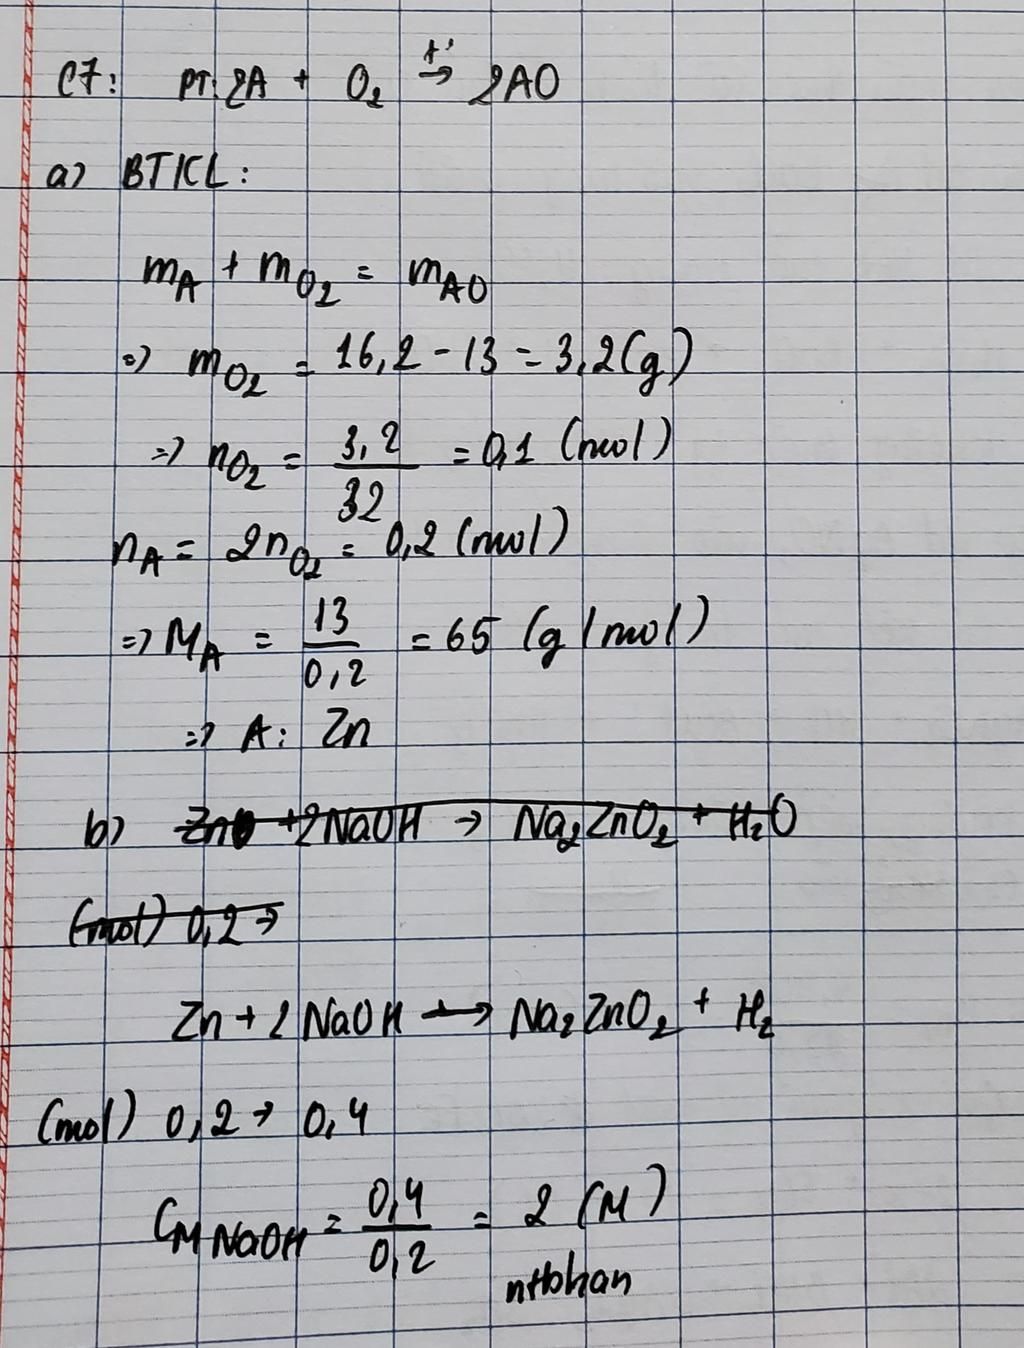 C7: PT: 2A + O₂ t°→ 2AO
a) BTKL:
mA + mO₂ = mAO
=> mO₂ = 16,2 - 13 = 3,2 (g)
=> nO₂ = 3,2/32 = 0,1 (mol)
nA = 2nO₂ = 0,2 (mol)
=> MA = 13/0,2 = 65 (g/mol)
=> A: Zn
b) ZnO + 2NaOH → Na₂ZnO₂ + H₂O
(mol) 0,2 →
Zn + 2NaOH → Na₂ZnO₂ + H₂
(mol) 0,2 → 0,4
CM NaOH = 0,4/0,2 = 2 (M)